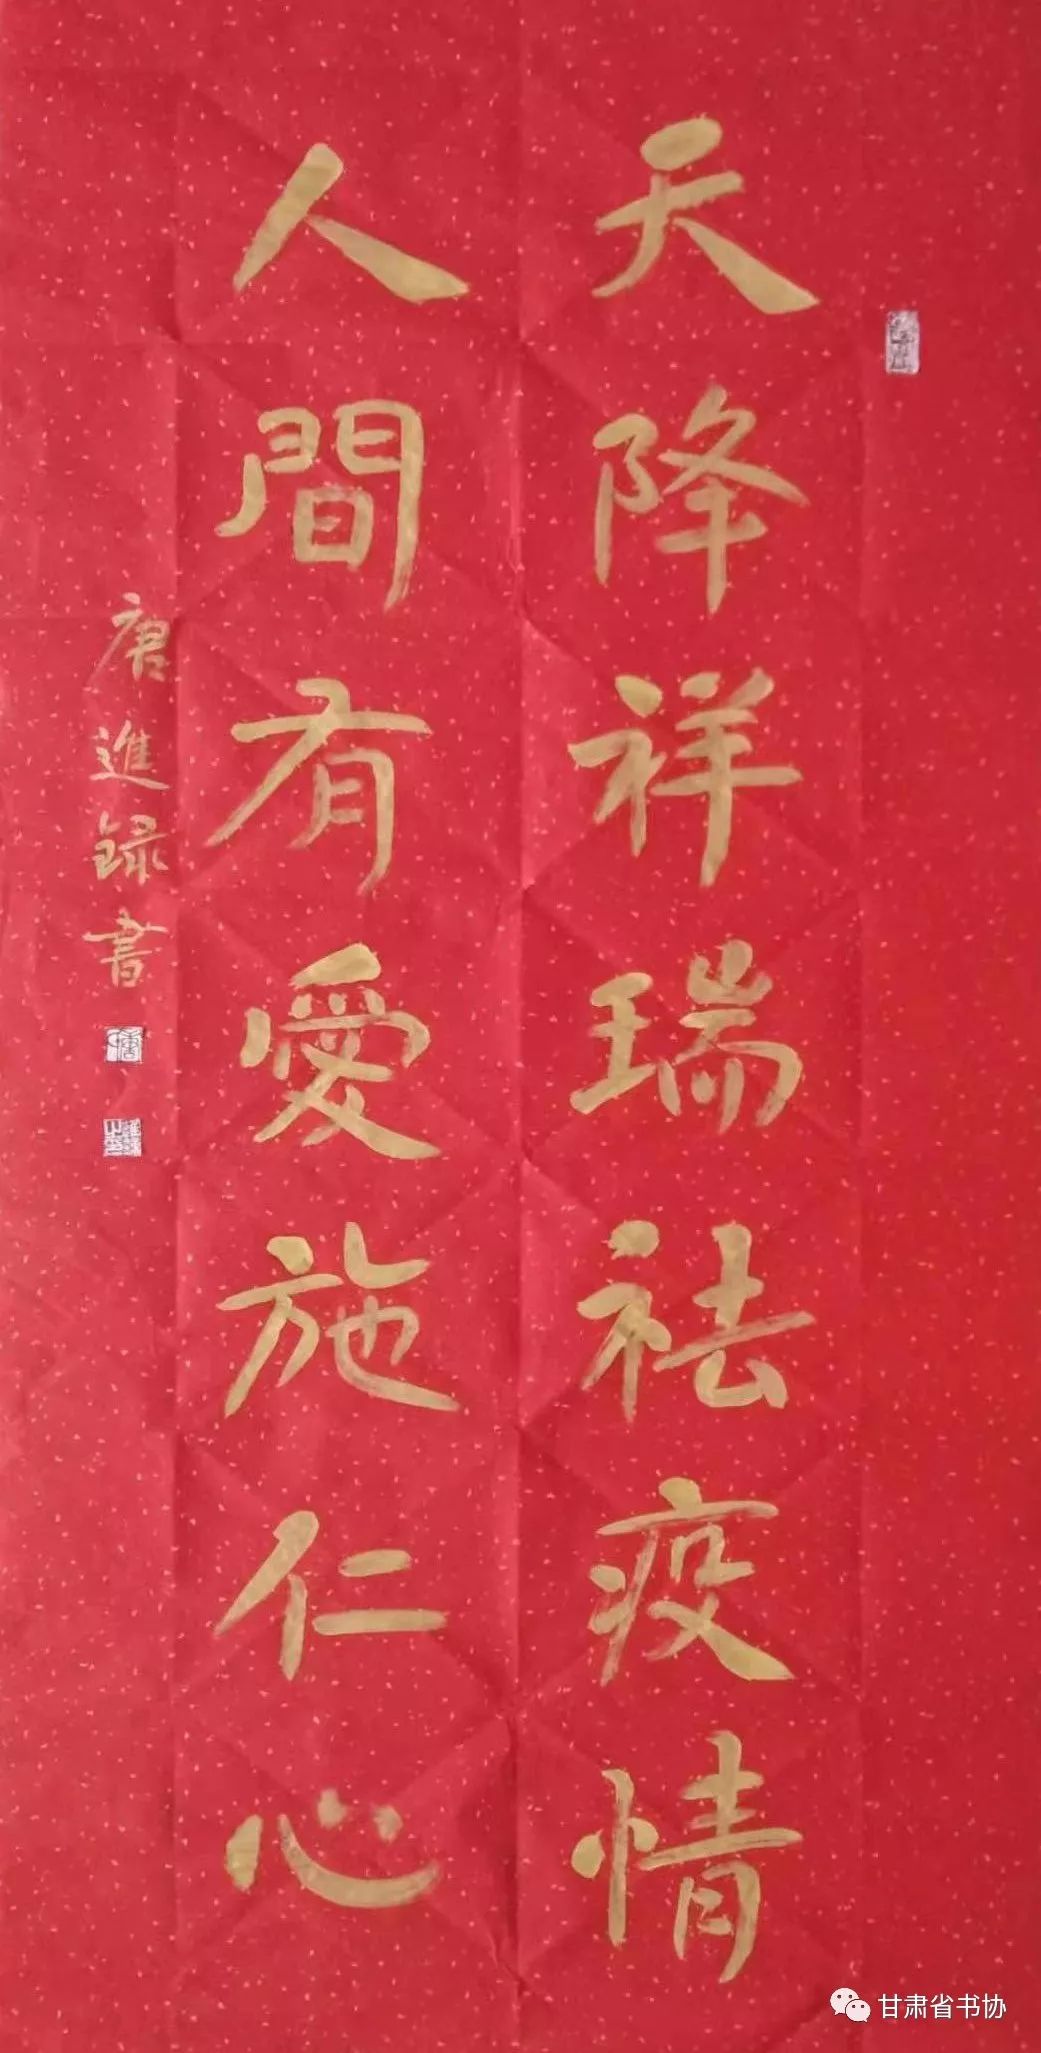 天降祥瑞祛疫情
人間有愛施仁心
唐進録書
甘肃省书协